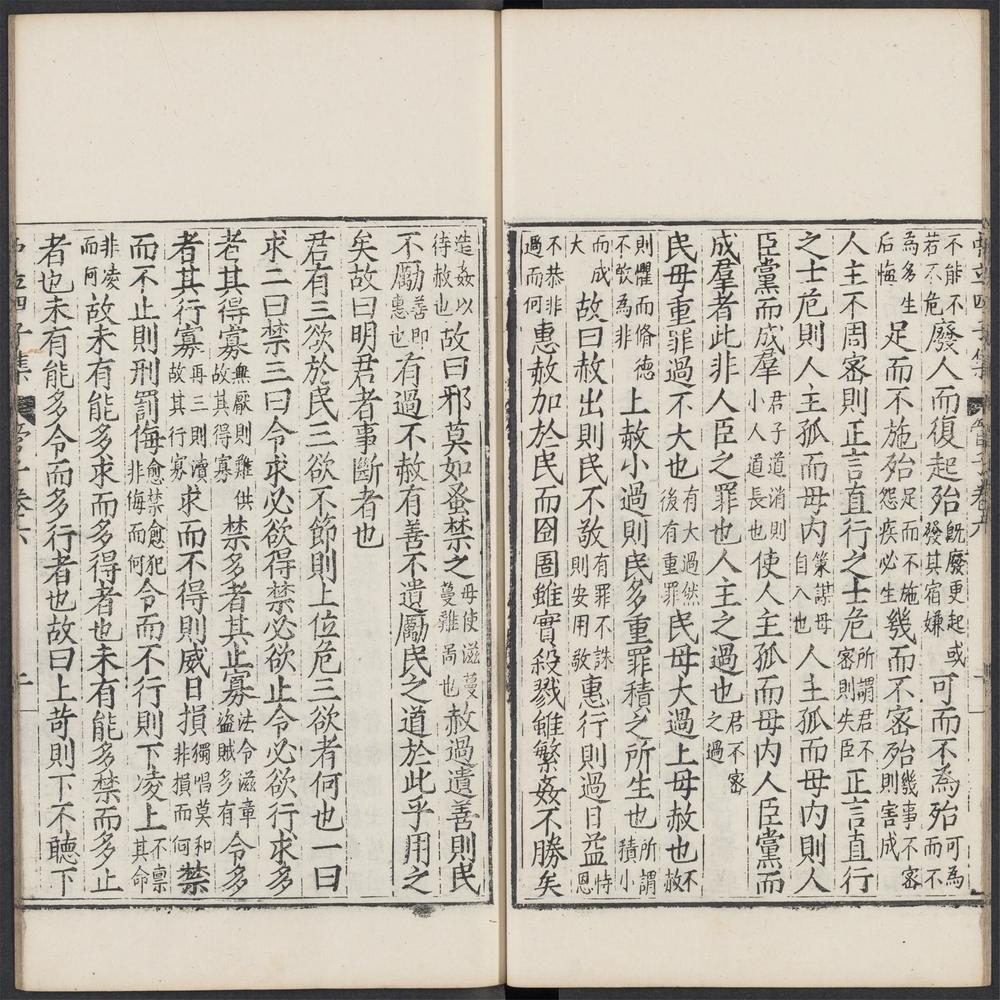 不能不若不危廢人而復起殆既廢更起或發其宿嫌可而不為殆可為而不
為多生后悔足而不施殆足而不施怨疾必生幾而不密殆幾事不密則害成
人主不周密則正言直行之士危所謂君不密則失臣正言直行
之士危則人主孤而毋內策謀毋自入也人主孤而毋內則人
臣黨而成羣君子道消則小人道長也使人主孤而毋內人臣黨而
成羣者此非人臣之罪也人主之過也君不密之過
民毋重罪過不大也有大過然後有重罪民毋大過上毋赦也不赦
則懼而脩德不敢為非上赦小過則民多重罪積之所生也所謂積小
而成大故曰赦出則民不敬有罪不誅則安用敬惠行則過日益恃恩
不恭非過而何惠赦加於民而囹圄雖實殺戮雖繁姦不勝矣
造姦以待赦也故曰邪莫如蚤禁之毋使滋蔓蔓難啚也赦過遺善則民
不勵善即惠也有過不赦有善不遺勵民之道於此乎用之
矣故曰明君者事斷者也
君有三欲於民三欲不節則上位危三欲者何也一曰
求二曰禁三曰令求必欲得禁必欲止令必欲行求多
者其得寡無厭則難供故其得寡禁多者其止寡法令滋章盜賊多有令多
者其行寡再三則瀆故其行寡求而不得則威日損獨唱莫和非損而何禁
而不止則刑罰侮愈禁愈犯非侮而何令而不行則下凌上不稟其命
非凌而何故未有能多求而多得者也未有能多禁而多止
者也未有能多令而多行者也故曰上苛則下不聽下